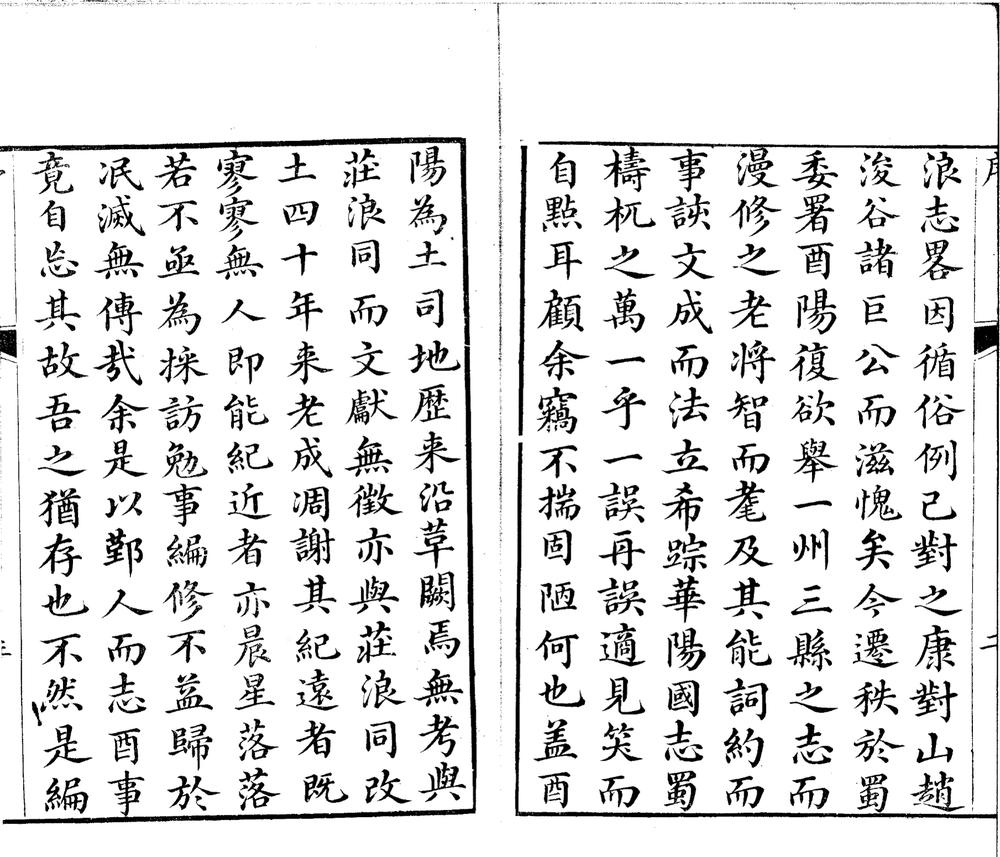 浪志畧因循俗例已對之康對山趙
浚谷諸巨公而滋愧矣今遷秩於蜀
委署酉陽復欲舉一州三縣之志而
漫修之老将智而耄及其能詞約而
事該文成而法立希踪華陽國志蜀
檮杌之萬一乎一誤再誤適見笑而
自點耳顧余竊不揣固陋何也盖酉
陽為土司地歷来沿草闕焉無考與
莊浪同而文獻無徵亦與莊浪同改
土四十年来老成凋謝其紀遠者既
寥寥無人即能紀近者亦晨星落落
若不亟為採訪勉事編修不益歸於
泯滅無傳哉余是以鄞人而志酉事
竟自忘其故吾之猶存也不然是編